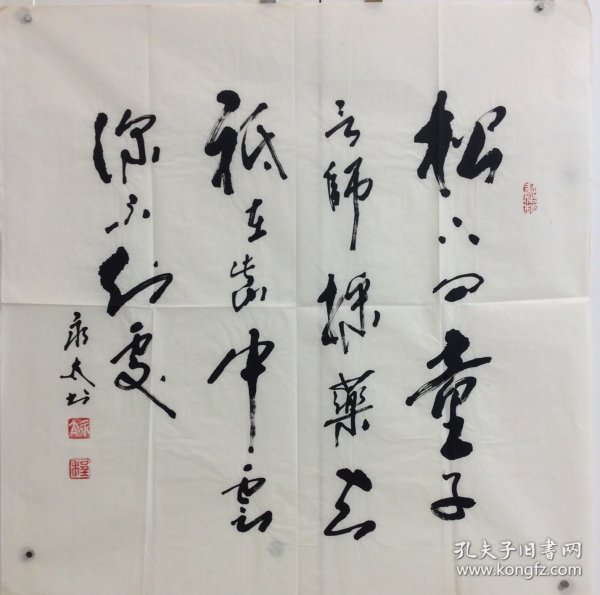 松下問童子
言師採藥去
祇在此山中雲
深不知處
孔夫子旧书网
www.kongfz.com